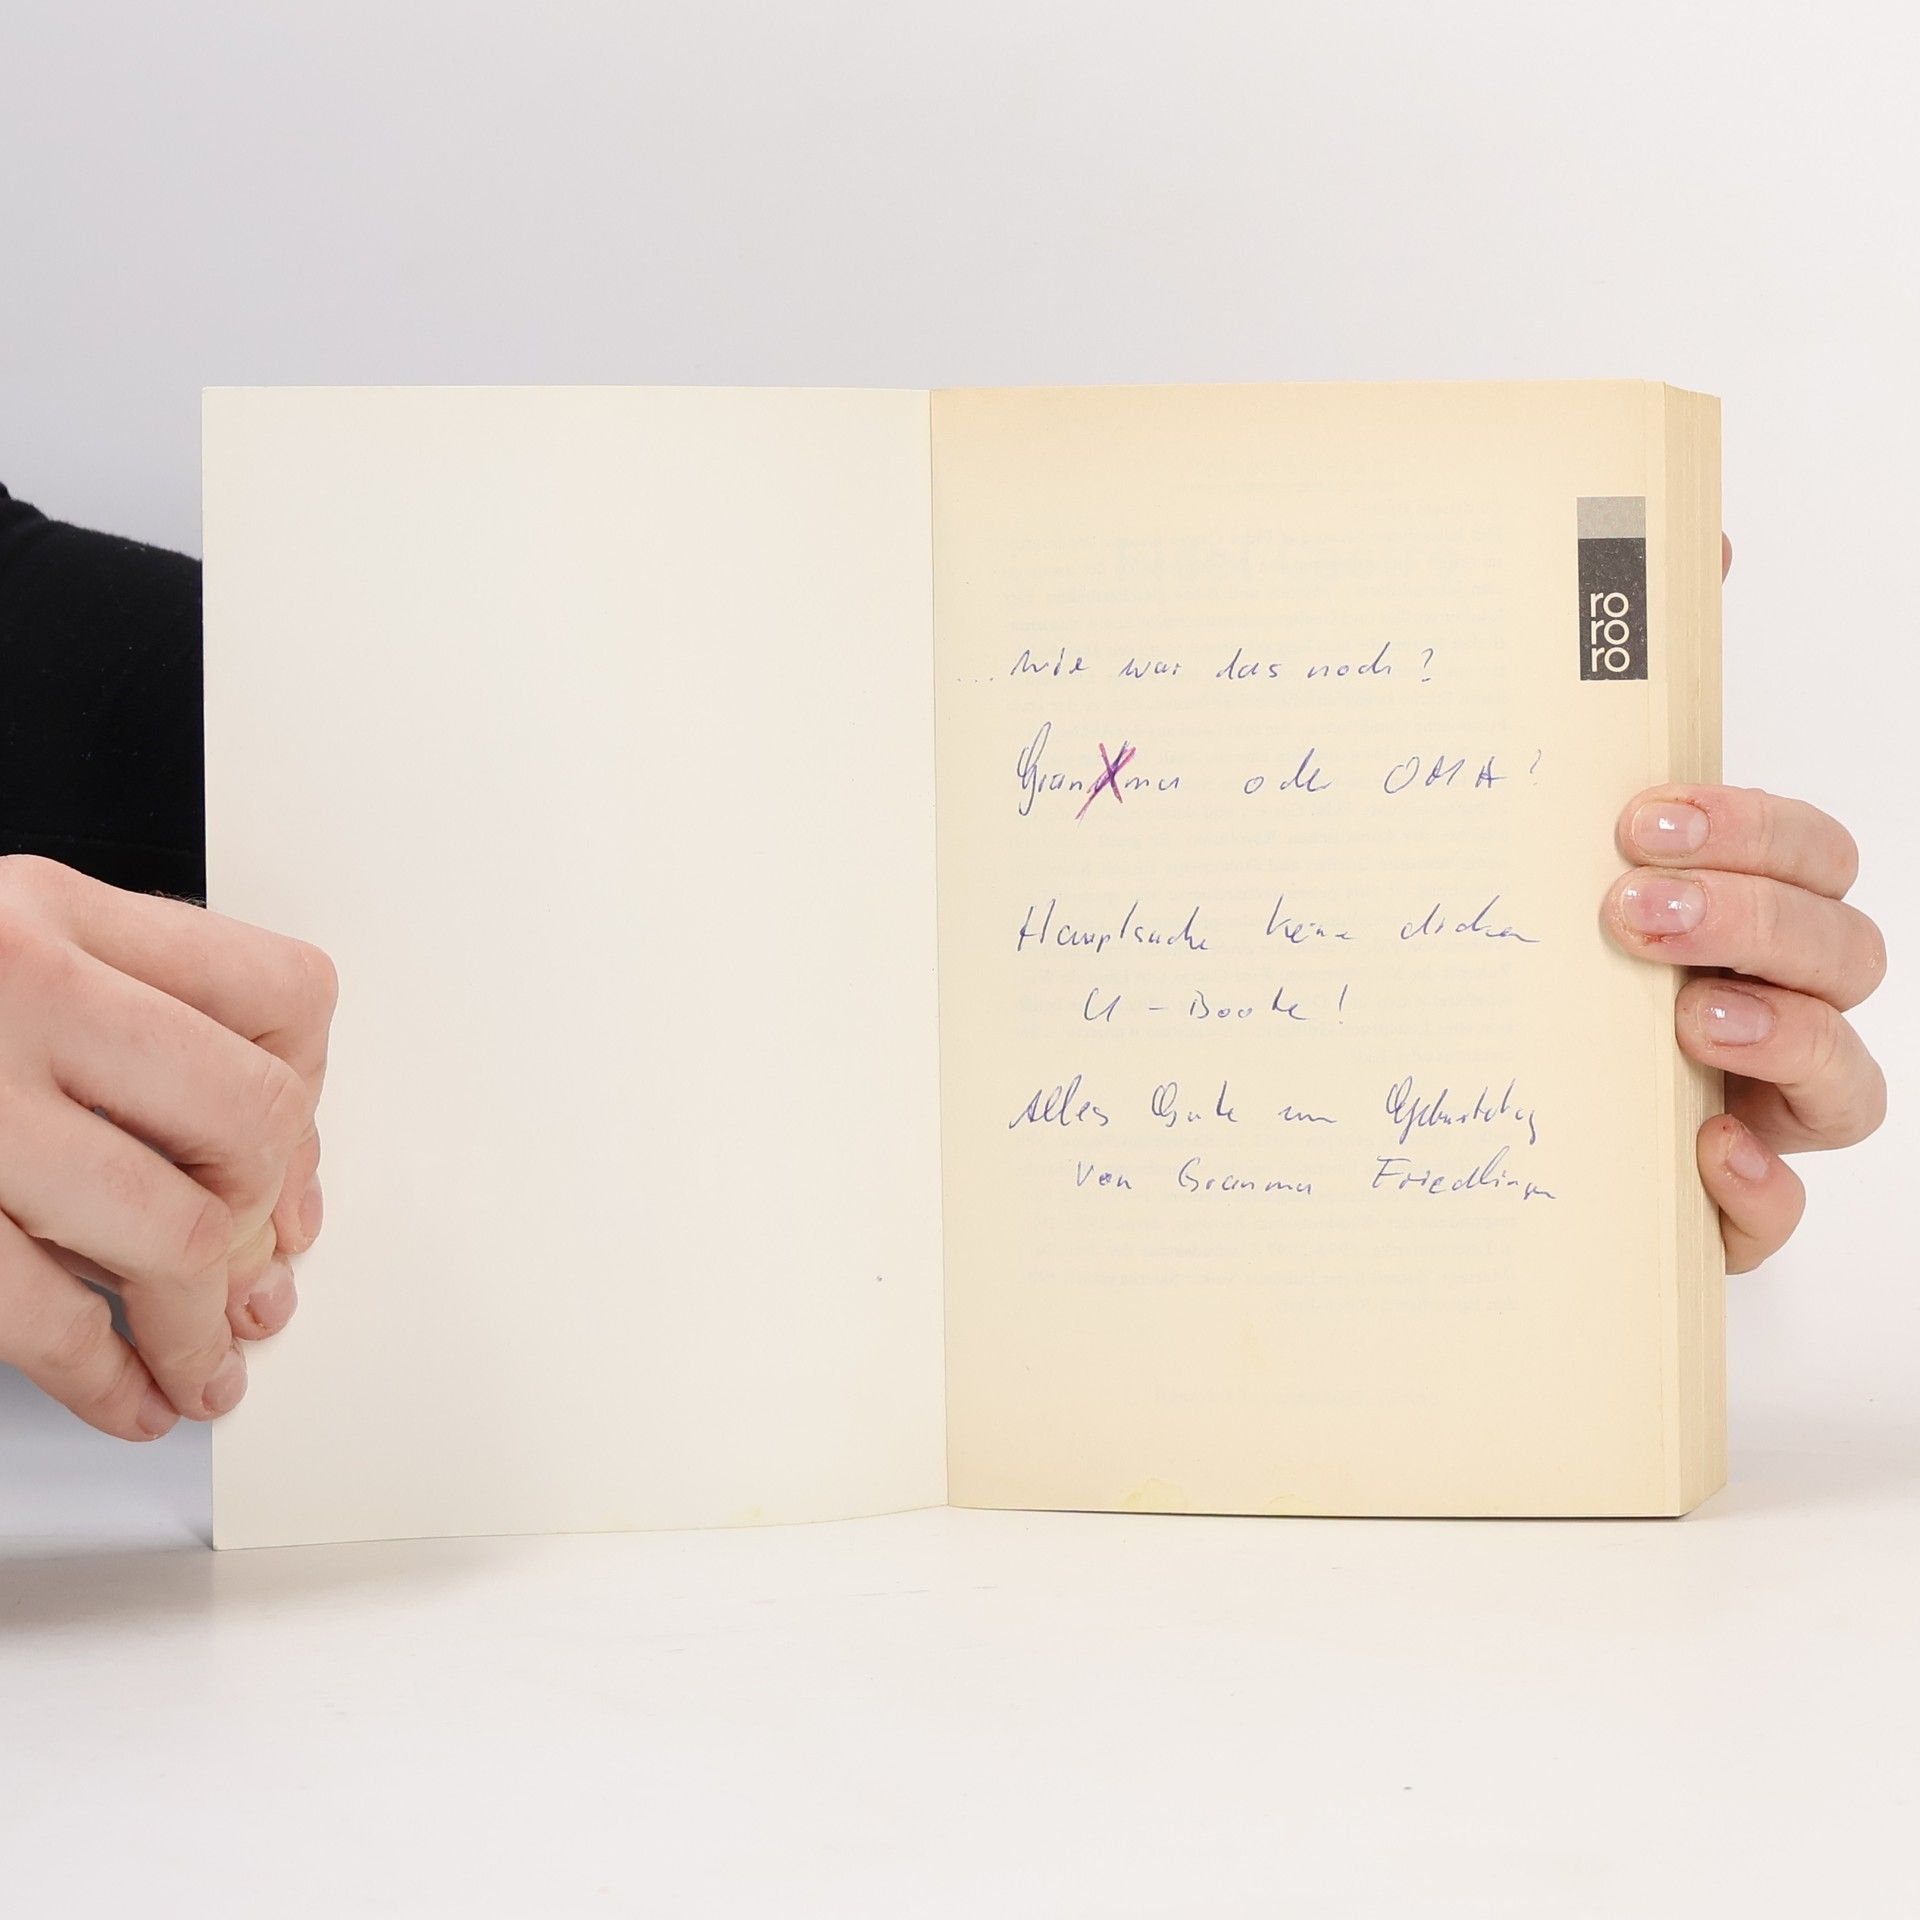 ... wie war das noch?
Granma oder OMA?
Hauptsache keine dicken
U-Boote!
Alles Gute zum Geburtstag
von Granma Friedlinger
ro
ro
ro